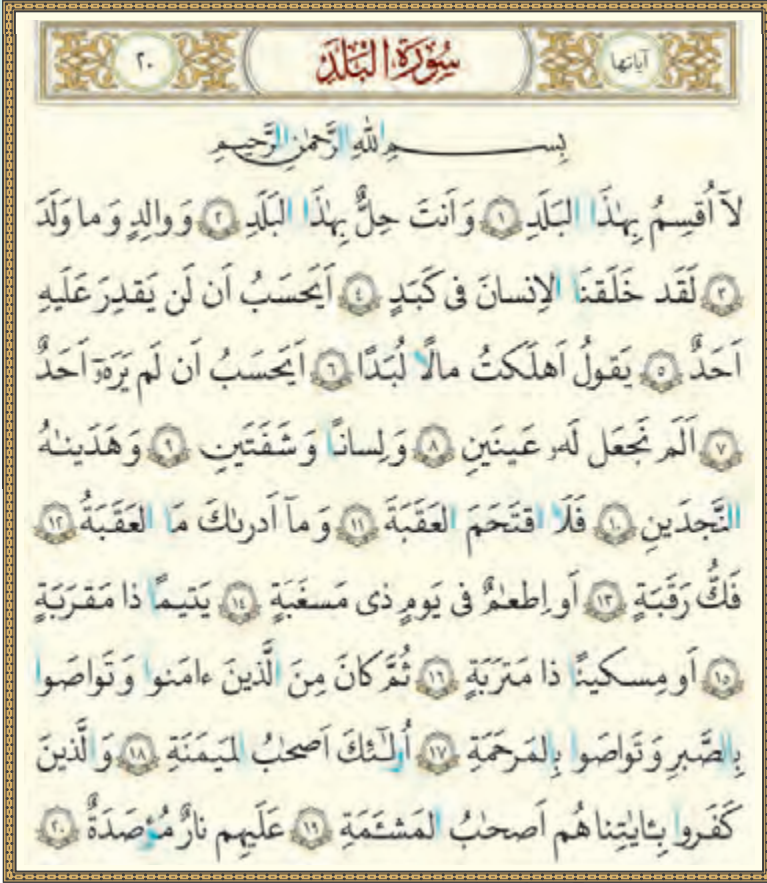 آیاتها سُورَةُ البَلَدِ ٢٠
بِسمِ اللهِ الرَّحمٰنِ الرَّحیمِ
لآ اُقسِمُ بِهٰذَا البَلَدِ ﴿١﴾ وَ اَنتَ حِلٌّ بِهٰذَا البَلَدِ ﴿٢﴾ وَ والِدٍ وَ ما وَلَدَ
﴿٣﴾ لَقَد خَلَقنَا الاِنسانَ فی کَبَدٍ ﴿٤﴾ اَیَحسَبُ اَن لَن یَقدِرَ عَلَیهِ
اَحَدٌ ﴿٥﴾ یَقولُ اَهلَکتُ مالًا لُبَدًا ﴿٦﴾ اَیَحسَبُ اَن لَم یَرَهُۥٓ اَحَدٌ
﴿٧﴾ اَلَم نَجعَل لَهُۥ عَینَینِ ﴿٨﴾ وَ لِسانًا وَ شَفَتَینِ ﴿٩﴾ وَ هَدَینٰهُ
النَّجدَینِ ﴿١٠﴾ فَلَا اقتَحَمَ العَقَبَةَ ﴿١١﴾ وَ مآ اَدرىٰکَ مَا العَقَبَةُ ﴿١٢﴾
فَکُّ رَقَبَةٍ ﴿١٣﴾ اَو اِطعٰمٌ فی یَومٍ ذی مَسغَبَةٍ ﴿١٤﴾ یَتیمًا ذا مَقرَبَةٍ
﴿١٥﴾ اَو مِسکینًا ذا مَترَبَةٍ ﴿١٦﴾ ثُمَّ کانَ مِنَ الَّذینَ ءامَنوا وَ تَواصَوا
بِالصَّبرِ وَ تَواصَوا بِالمَرحَمَةِ ﴿١٧﴾ اُولٰٓئِکَ اَصحٰبُ المَیمَنَةِ ﴿١٨﴾ وَ الَّذینَ
کَفَروا بِـٔایٰتِنا هُم اَصحٰبُ المَشـَٔمَةِ ﴿١٩﴾ عَلَیهِم نارٌ مُؤصَدَةٌ ﴿٢٠﴾